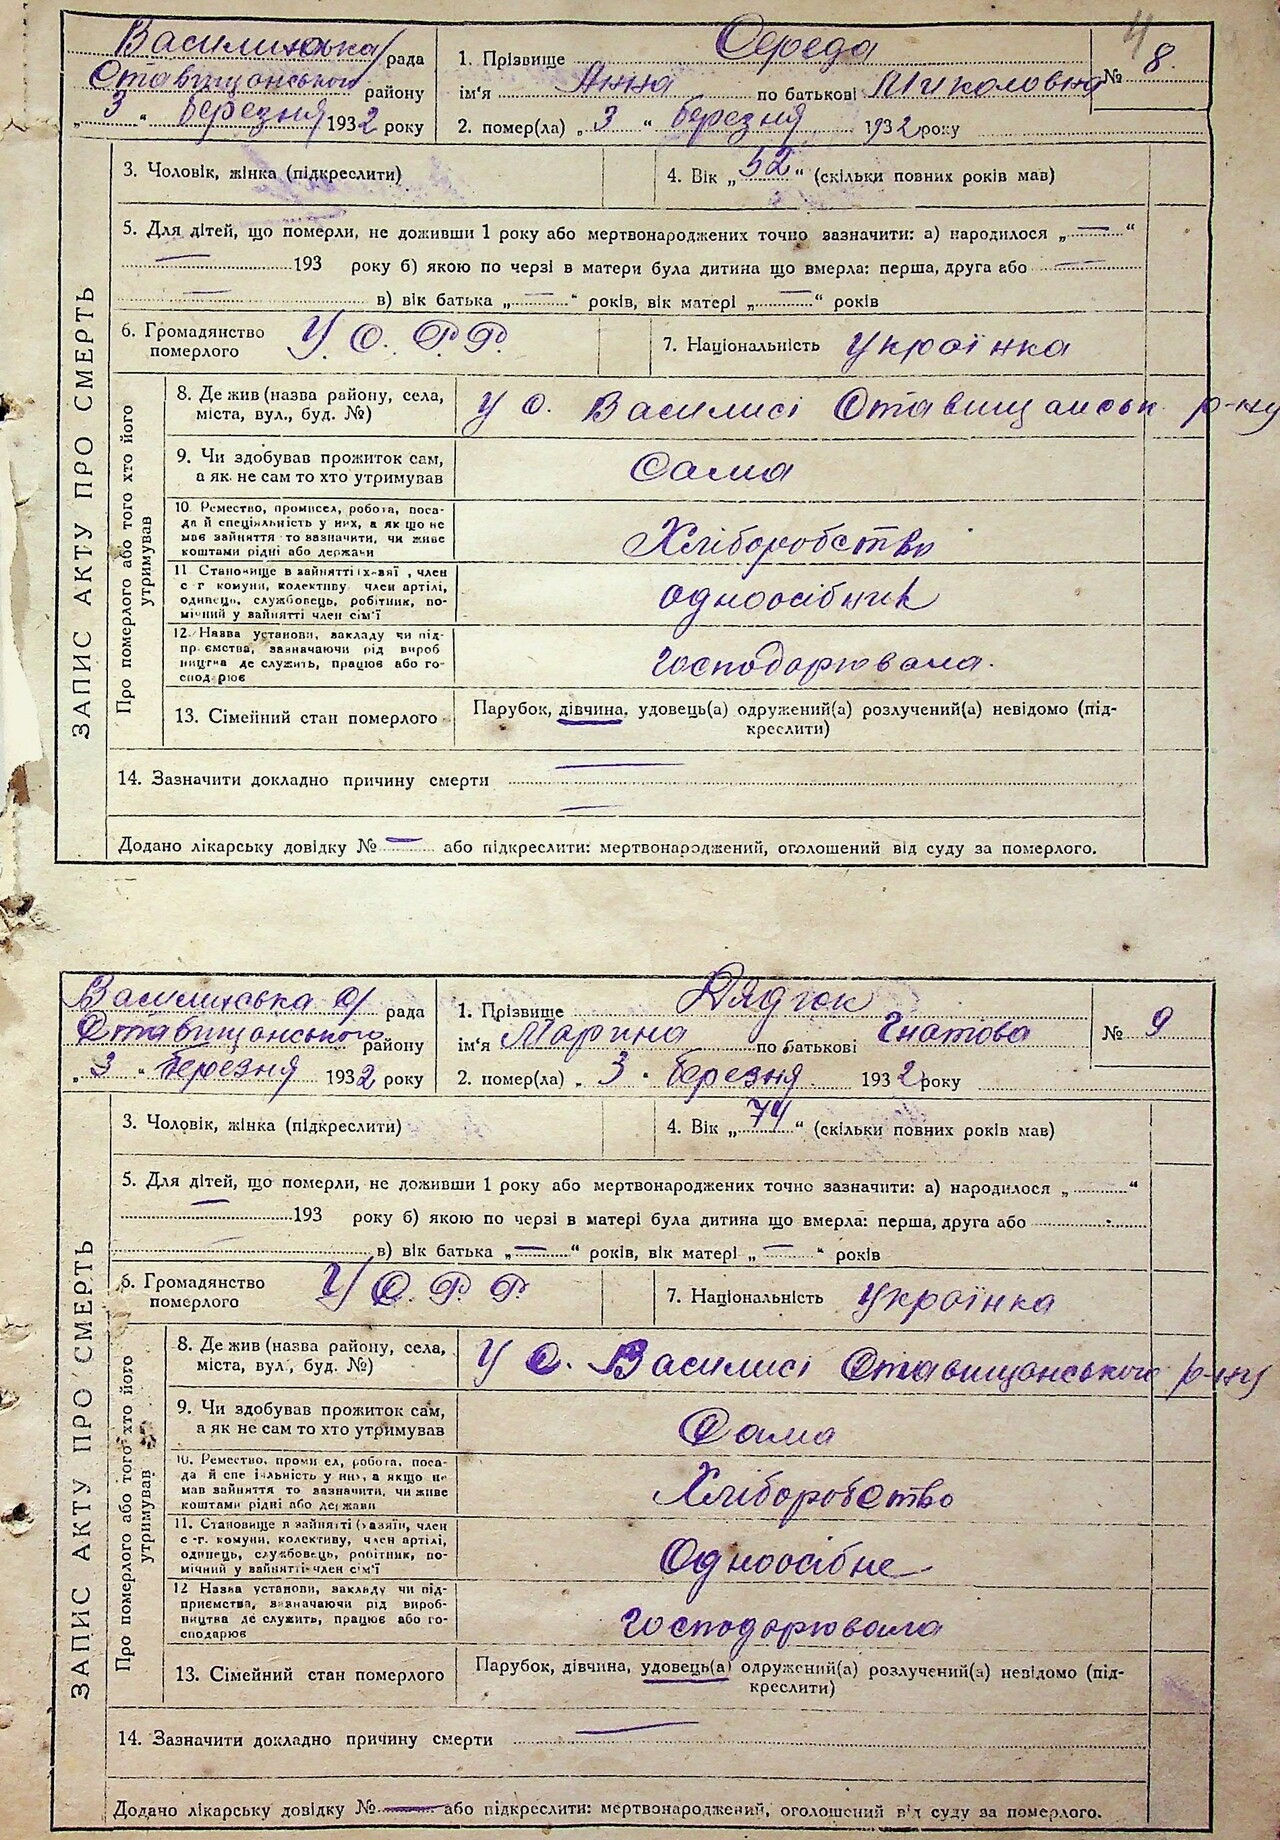 4
Василиська рада
Ставищанського району
„ 3 “ березня 1932 року
1. Прізвище Середа
ім‘я Анна по батькові Миколовна
2. помер(ла) „ 3 “ березня 1932 року
№ 8
ЗАПИС АКТУ ПРО СМЕРТЬ
3. Чоловік, жінка (підкреслити)
4. Вік „ 52 “ (скільки повних років мав)
5. Для дітей, що померли, не доживши 1 року або мертвонароджених точно зазначити: а) народилося „ — “
— 193 року б) якою по черзі в матери була дитина що вмерла: перша, друга або —
— в) вік батька „ — “ років, вік матері „ — “ років
6. Громадянство
померлого
У. С. Р. Р.
7. Національність українка
Про померлого або того хто його
утримував
8. Де жив (назва району, села,
міста, вул., буд. №)
у с. Василисі Ставищанськ. р-ну
9. Чи здобував прожиток сам,
а як не сам то хто утримував
Сама
10. Ремество, промисел, робота, поса-
да й спеціяльність у них, а як що не
має зайняття то зазначити, чи живе
коштами рідні або держави
Хліборобство
11. Становище в зайнятті , член
с-г комуни, колективу, член артілі,
одинець, службовець, робітник, по-
мічний у зайнятті член сім‘ї
одноосібник
12. Назва установи, закладу чи під-
приємства, зазначаючи рід вироб
ництва де служить, працює або го-
сподарює
господарювала.
13. Сімейний стан померлого
Парубок, дівчина, удовець(а) одружений(а) розлучений(а) невідомо (під-
креслити)
14. Зазначити докладно причину смерти —
—
Додано лікарську довідку № — або підкреслити: мертвонароджений, оголошений від суду за померлого.
Василиська с/ рада
Ставищанського району
„ 3 “ березня 1932 року
1. Прізвище Дядюк
ім‘я Марина по батькові Гнатова
2. помер(ла) „ 3 “ березня 1932 року
№ 9
ЗАПИС АКТУ ПРО СМЕРТЬ
3. Чоловік, жінка (підкреслити)
4. Вік „ 74 “ (скільки повних років мав)
5. Для дітей, що померли, не доживши 1 року або мертвонароджених точно зазначити: а) народилося „ “
— 193 року б) якою по черзі в матері була дитина що вмерла: перша, друга або
в) вік батька „ — “ років, вік матері „ — “ років
6. Громадянство
померлого
У С. Р. Р.
7. Національність українка
Про померлого або того хто його
утримував
8. Де жив (назва району, села,
міста, вул., буд. №)
у с. Василисі Ставищанського р-ну
9. Чи здобував прожиток сам,
а як не сам то хто утримував
Сама
10. Ремество, промисел, робота, поса-
да й спеціяльність у них, а якщо не
мав зайняття то зазначити, чи живе
коштами рідні або держави
Хліборобство
11. Становище в зайнятті (хазяїн, член
с-г. комуни, колективу, член артілі,
одинець, службовець, робітник, по-
мічний у зайнятті член сім‘ї
Одноосібне
12 Назва установи, закладу чи під-
приємства, зазначаючи рід вироб-
ництва де служить, працює або го-
сподарює
господарювала
13. Сімейний стан померлого
Парубок, дівчина, удовець(а) одружений(а) розлучений(а) невідомо (під-
креслити)
14. Зазначити докладно причину смерти —
Додано лікарську довідку № — або підкреслити: мертвонароджений, оголошений від суду за померлого.